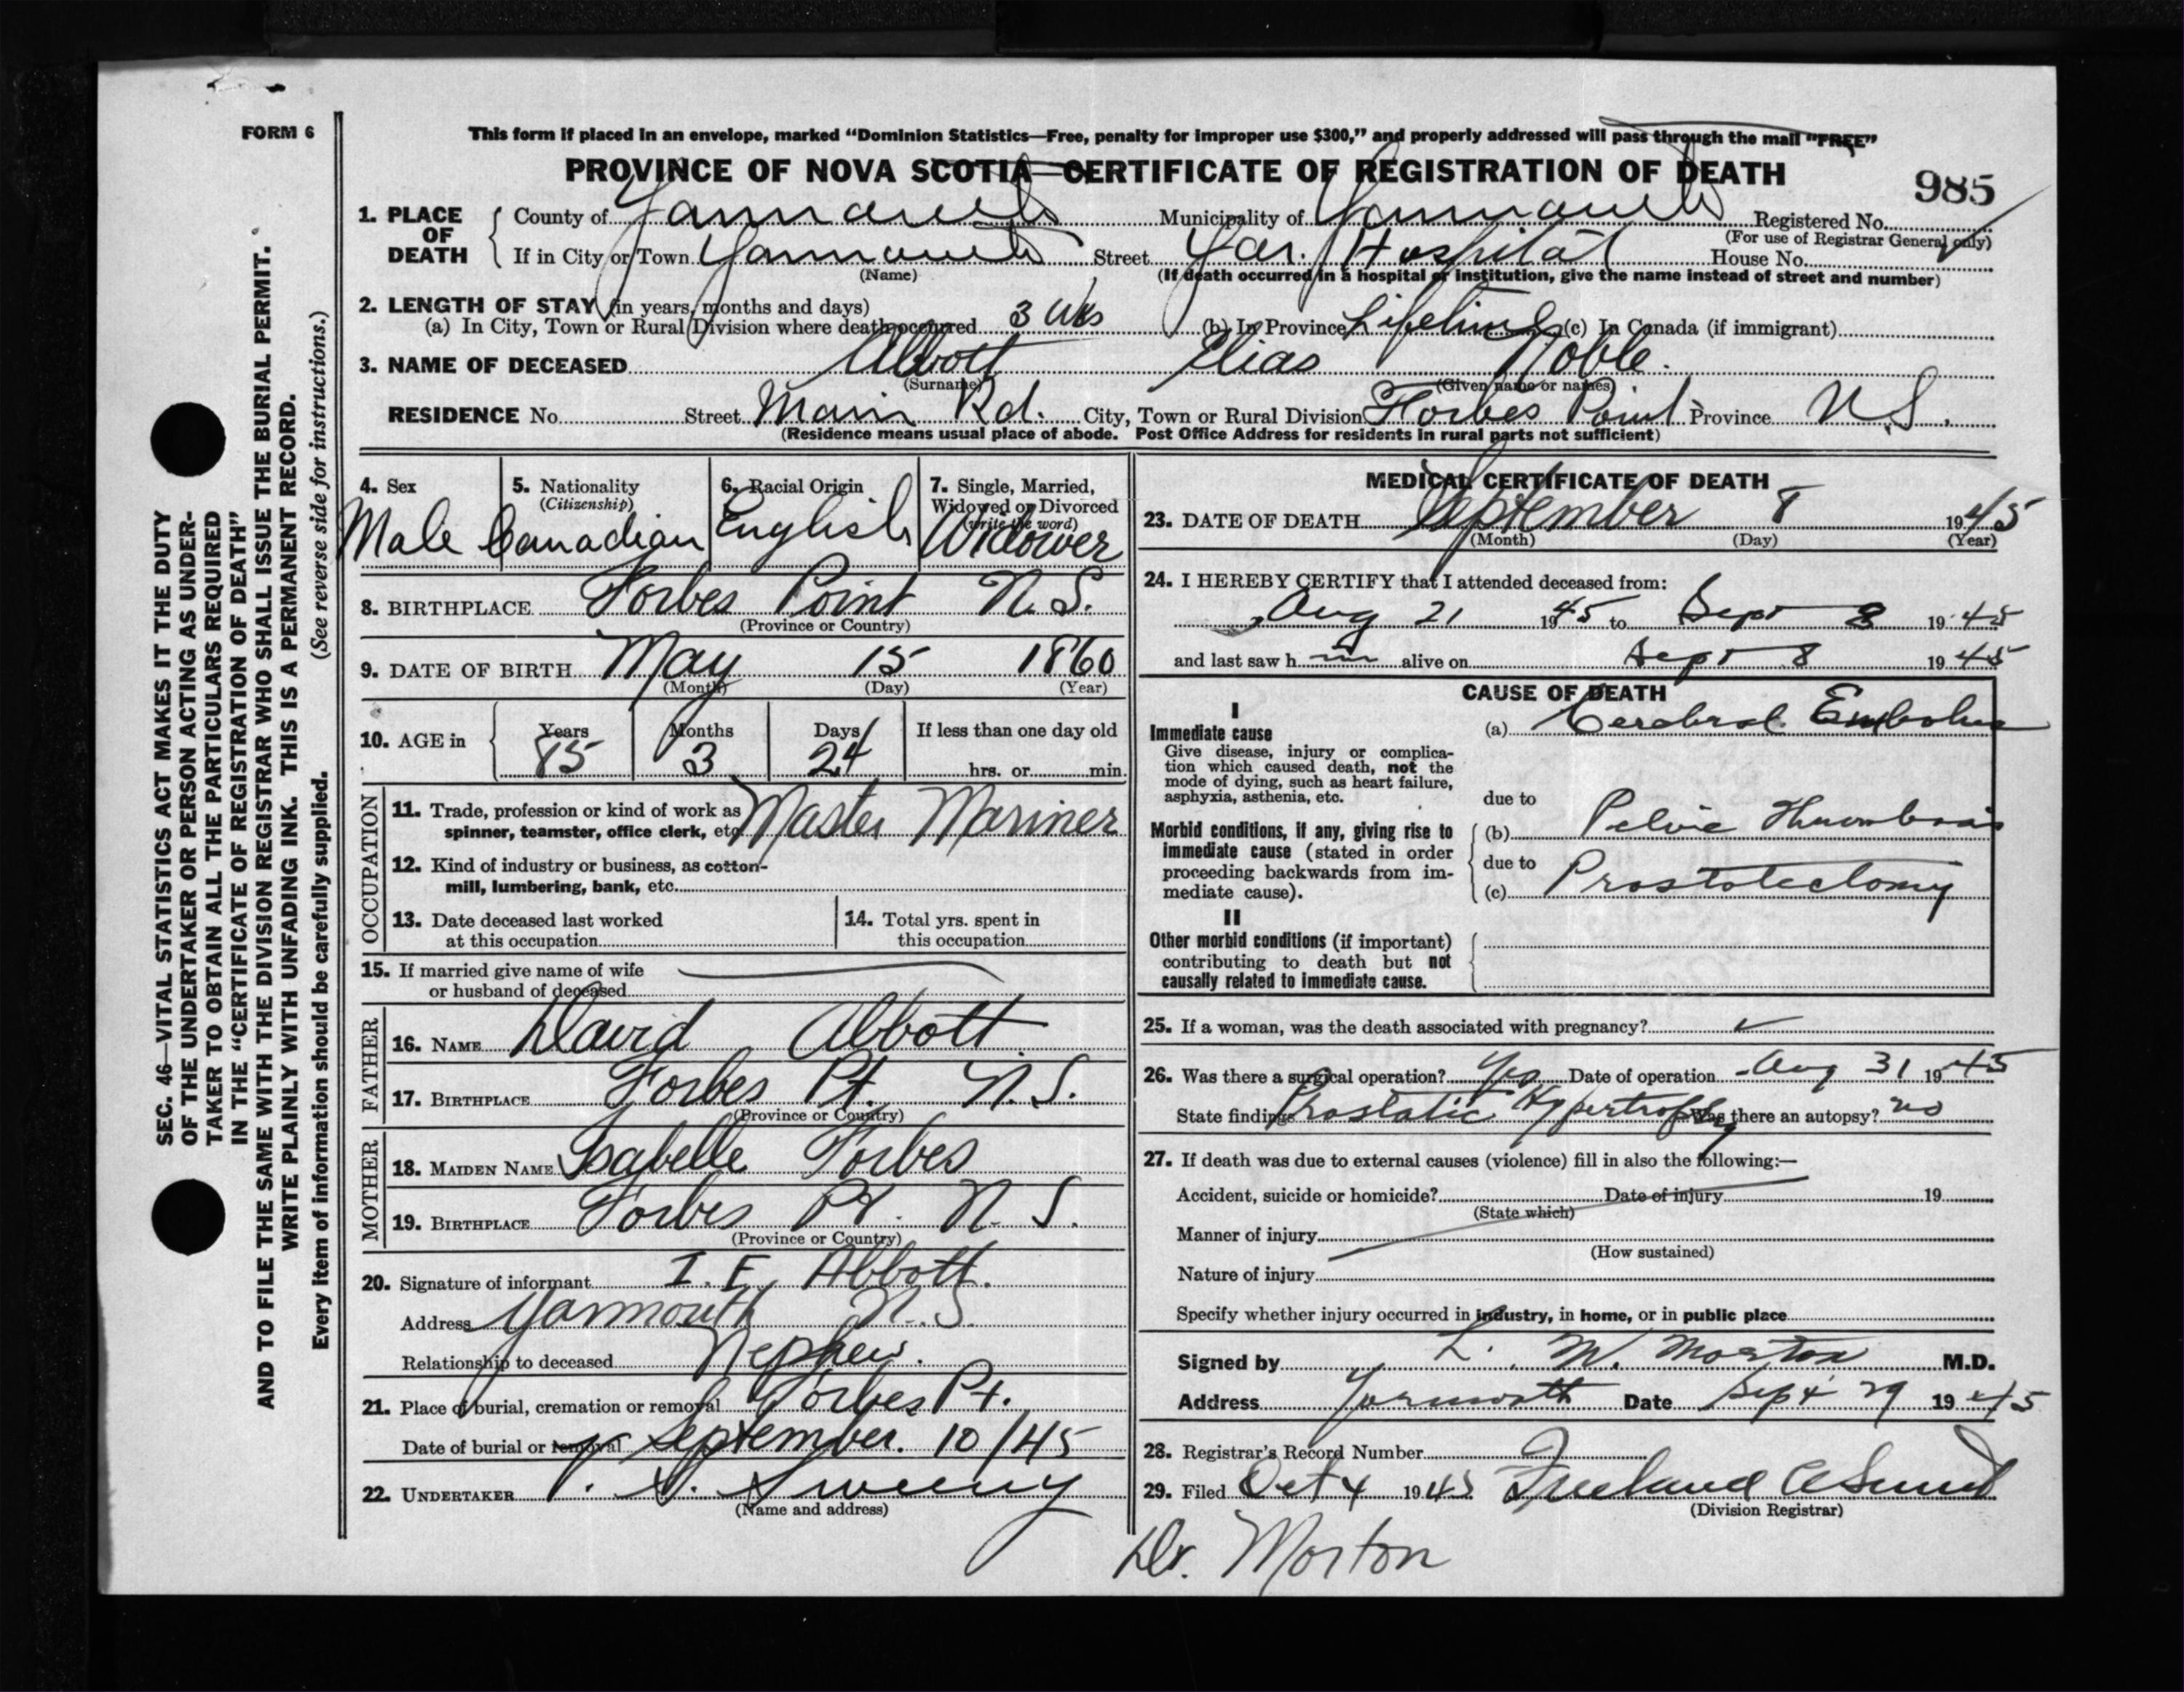 FORM 6
This form if placed in an envelope, marked “Dominion Statistics—Free, penalty for improper use $300,” and properly addressed will pass through the mail “FREE”
PROVINCE OF NOVA SCOTIA—CERTIFICATE OF REGISTRATION OF DEATH
985
1. PLACE OF DEATH { County of Yarmouth Municipality of Yarmouth Registered No.
(For use of Registrar General only)
If in City or Town Yarmouth Street Yar. Hospital House No.
(Name) (If death occurred in a hospital or institution, give the name instead of street and number)
2. LENGTH OF STAY (in years, months and days)
(a) In City, Town or Rural Division where death occurred 3 Wks (b) In Province Lifetime (c) In Canada (if immigrant)
3. NAME OF DECEASED Abbott Elias Noble.
(Surname) (Given name or names)
RESIDENCE No. Street Main Rd. City, Town or Rural Division Forbes Point Province N.S.
(Residence means usual place of abode. Post Office Address for residents in rural parts not sufficient)
4. Sex
Male
5. Nationality
(Citizenship)
Canadian
6. Racial Origin
English
7. Single, Married,
Widowed or Divorced
(write the word)
Widower
8. BIRTHPLACE Forbes Point N.S.
(Province or Country)
9. DATE OF BIRTH May 15 1860
(Month) (Day) (Year)
10. AGE in { Years Months Days If less than one day old
85 3 24 hrs. or min.
OCCUPATION
11. Trade, profession or kind of work as
spinner, teamster, office clerk, etc. Master Mariner
12. Kind of industry or business, as cotton-
mill, lumbering, bank, etc.
13. Date deceased last worked
at this occupation
14. Total yrs. spent in
this occupation
15. If married give name of wife
or husband of deceased
FATHER
16. NAME David Abbott
17. BIRTHPLACE Forbes Pt. N.S.
(Province or Country)
MOTHER
18. MAIDEN NAME Isabelle Forbes
19. BIRTHPLACE Forbes Pt. N.S.
(Province or Country)
20. Signature of informant I. E. Abbott.
Address Yarmouth N.S.
Relationship to deceased Nephew.
21. Place of burial, cremation or removal Forbes Pt.
Date of burial or removal September. 10/45
22. UNDERTAKER V. S. Sweeny
(Name and address)
MEDICAL CERTIFICATE OF DEATH
23. DATE OF DEATH September 8 1945
(Month) (Day) (Year)
24. I HEREBY CERTIFY that I attended deceased from:
Aug 21 1945 to Sept 8 1945
and last saw h im alive on Sept 8 1945
CAUSE OF DEATH
I
Immediate cause
Give disease, injury or complica-
tion which caused death, not the
mode of dying, such as heart failure,
asphyxia, asthenia, etc.
(a) Cerebral Embolus
due to
Morbid conditions, if any, giving rise to
immediate cause (stated in order
proceeding backwards from im-
mediate cause).
(b) Pelvic Thrombosis
due to
(c) Prostatectomy
II
Other morbid conditions (if important)
contributing to death but not
causally related to immediate cause.
25. If a woman, was the death associated with pregnancy?
26. Was there a surgical operation? Yes Date of operation Aug 31 1945
State findings Prostatic Hypertrophy Was there an autopsy? no
27. If death was due to external causes (violence) fill in also the following:—
Accident, suicide or homicide? Date of injury 19
(State which)
Manner of injury
(How sustained)
Nature of injury
Specify whether injury occurred in industry, in home, or in public place
Signed by L. W. Morton M.D.
Address Yarmouth Date Sept 29 1945
28. Registrar's Record Number
29. Filed Oct 4 1945 Freeland
(Division Registrar)
Dr. Morton
SEC. 46—VITAL STATISTICS ACT MAKES IT THE DUTY
OF THE UNDERTAKER OR PERSON ACTING AS UNDER-
TAKER TO OBTAIN ALL THE PARTICULARS REQUIRED
IN THE “CERTIFICATE OF REGISTRATION OF DEATH”
AND TO FILE THE SAME WITH THE DIVISION REGISTRAR WHO SHALL ISSUE THE BURIAL PERMIT.
WRITE PLAINLY WITH UNFADING INK. THIS IS A PERMANENT RECORD.
Every item of information should be carefully supplied. (See reverse side for instructions.)